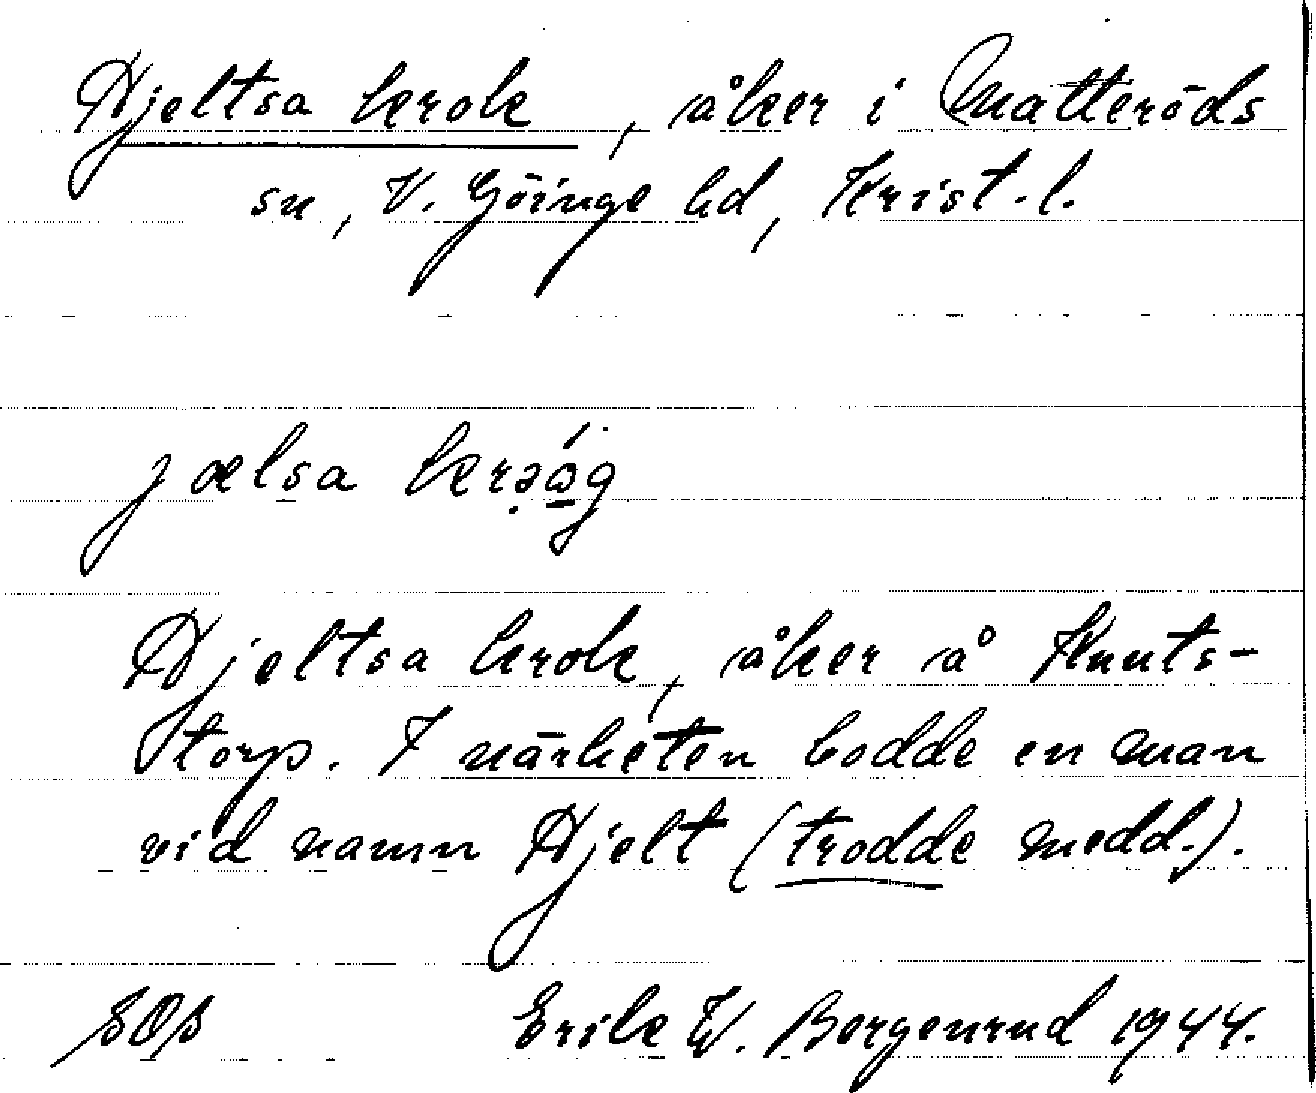 Hjeltsa krok, åker i Matteröds
sn, V. Göinge hd, Krist. l.
jælsa
Hjeltsa krok, åker å Knuts-
torp. I närheten bodde en man
vid namn Hjelt (trodde medd.).
Erik W. Bergenrud 1944.